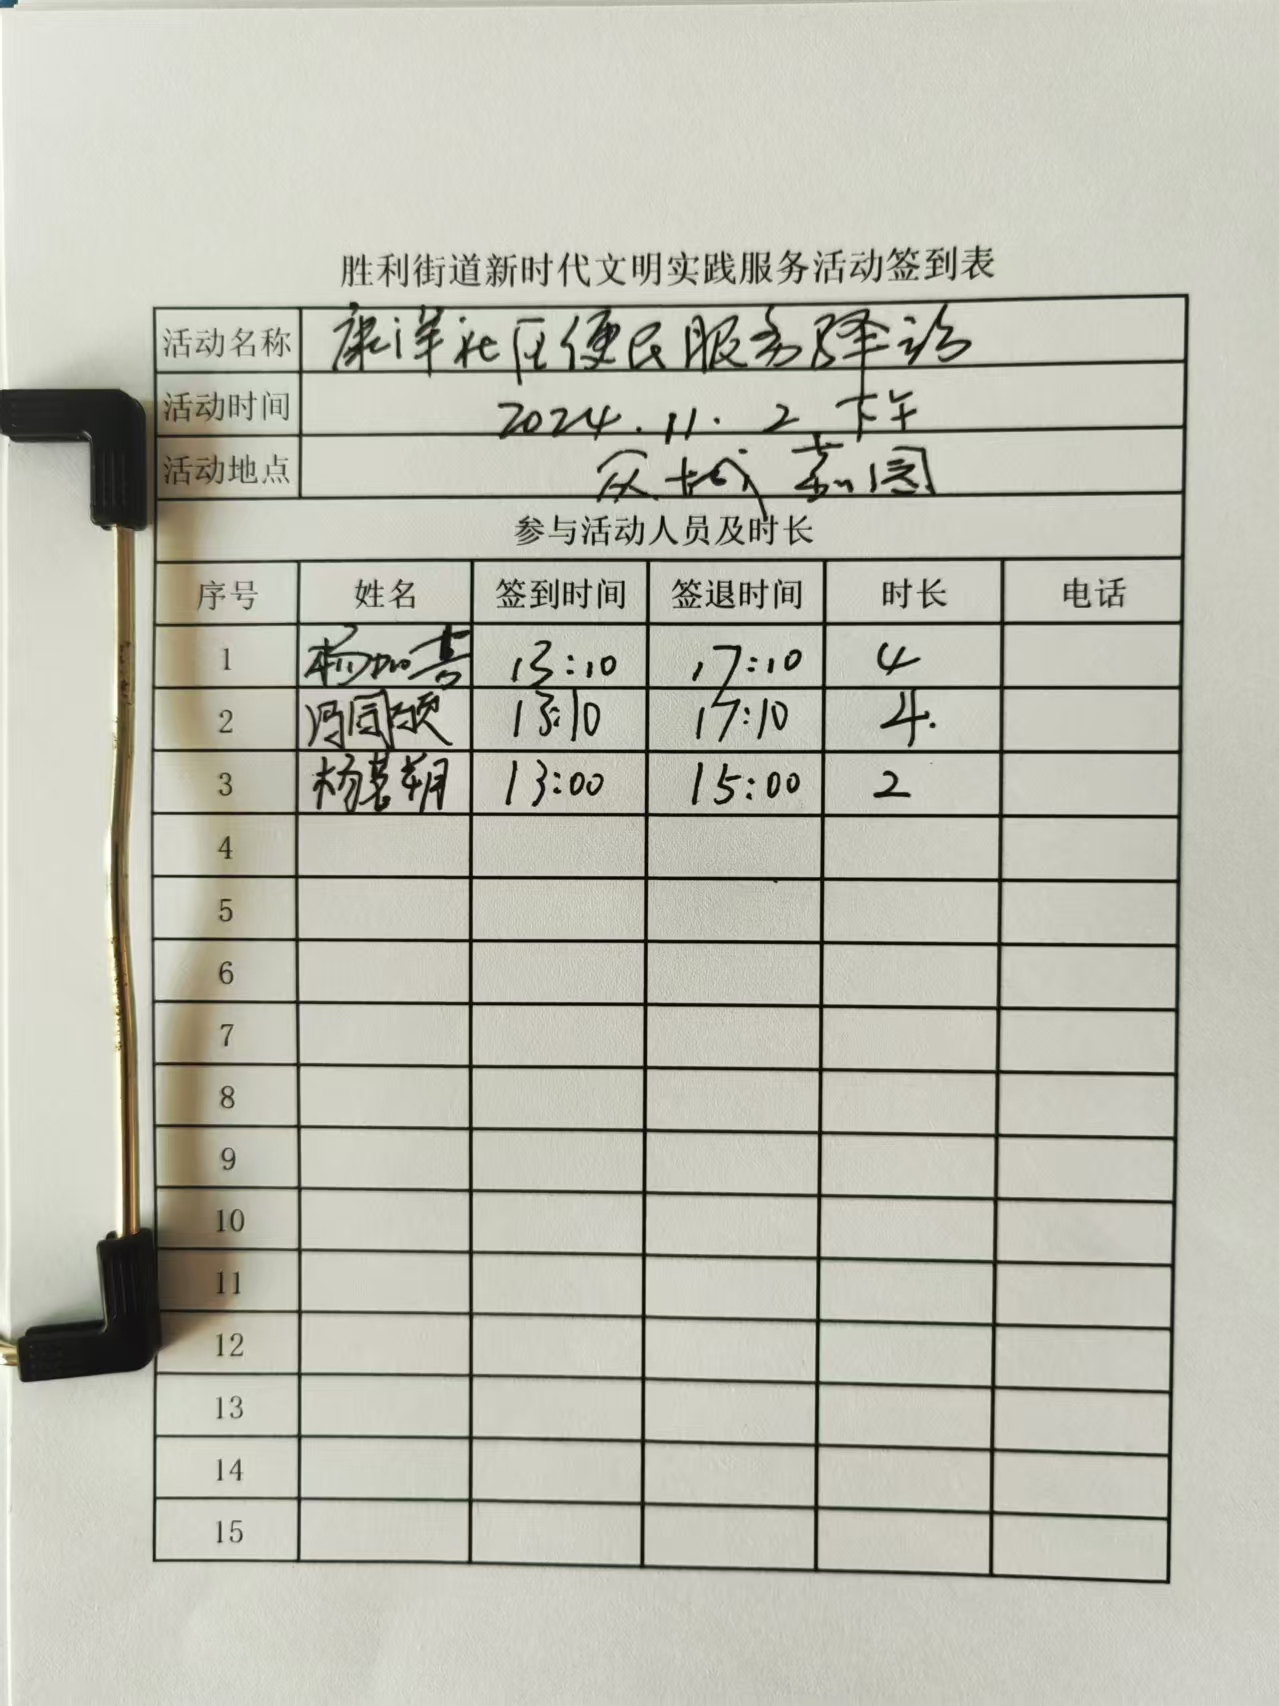 胜利街道新时代文明实践服务活动签到表
活动名称 康洋社区便民服务驿站
活动时间 2024.11.2 下午
活动地点 众城嘉园
参与活动人员及时长
序号 姓名 签到时间 签退时间 时长 电话
1 13:10 17:10 4
2 13:10 17:10 4.
3 杨慧朔 13:00 15:00 2
4
5
6
7
8
9
10
11
12
13
14
15